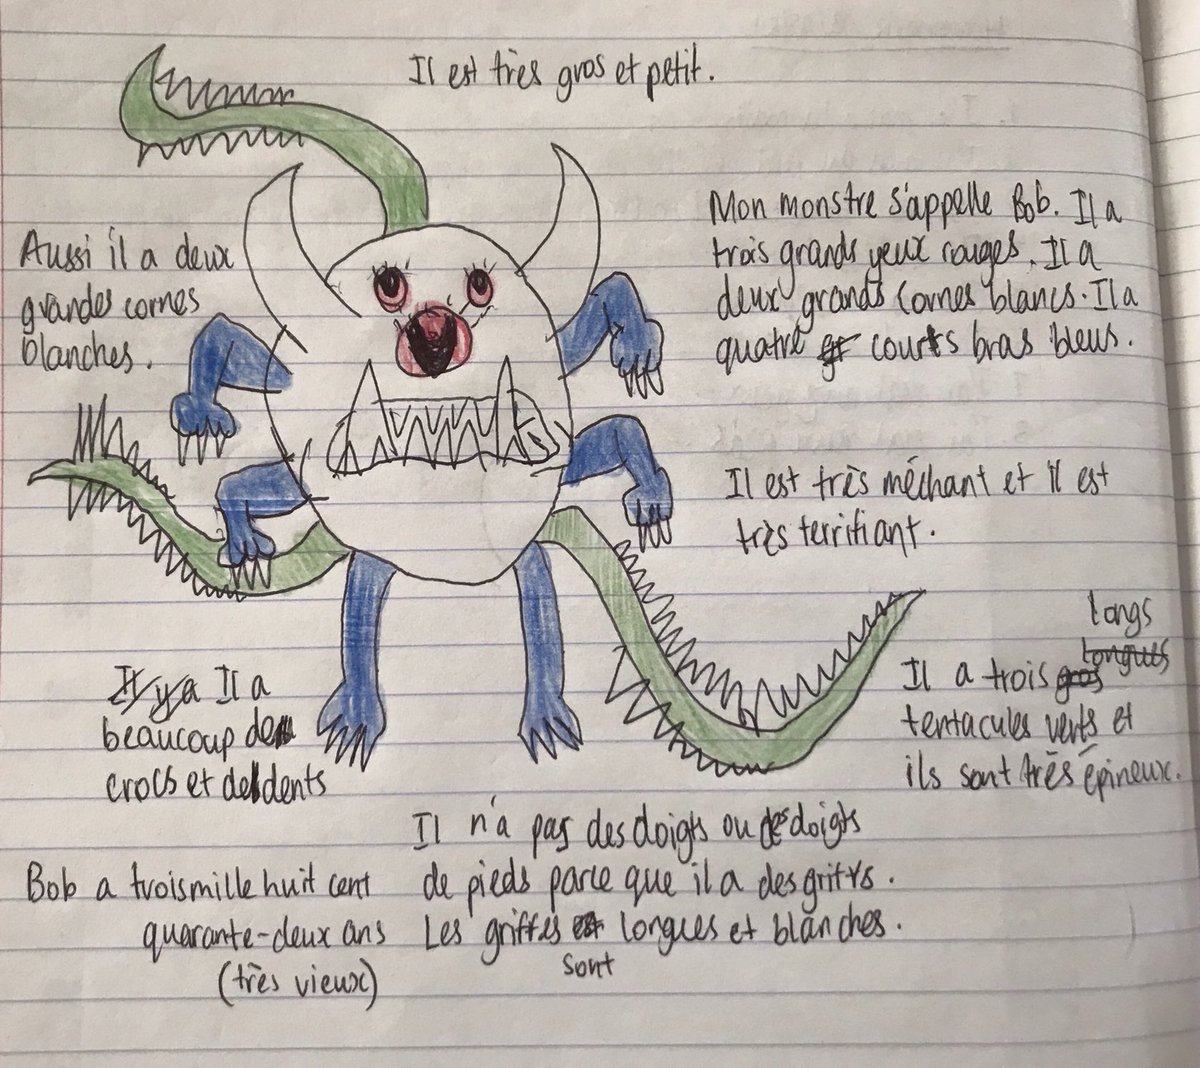 Il est très gros et petit.
Mon monstre s'appelle Bob. Il a
trois grands yeux rouges. Il a
deux grands cornes blancs. Il a
quatre courts bras bleus.
Aussi il a deux
grandes cornes
blanches.
Il est très méchant et il est
très terrifiant.
longs
longues
Il a trois gros
tentacules verts et
ils sont très épineux.
Il y a Il a
beaucoup de
crocs et de dents
Il n'a pas des doigts ou des doigts
de pieds parce que il a des griffes.
Les griffes est longues et blanches.
sont
Bob a troismille huit cent
quarante-deux ans
(très vieux)